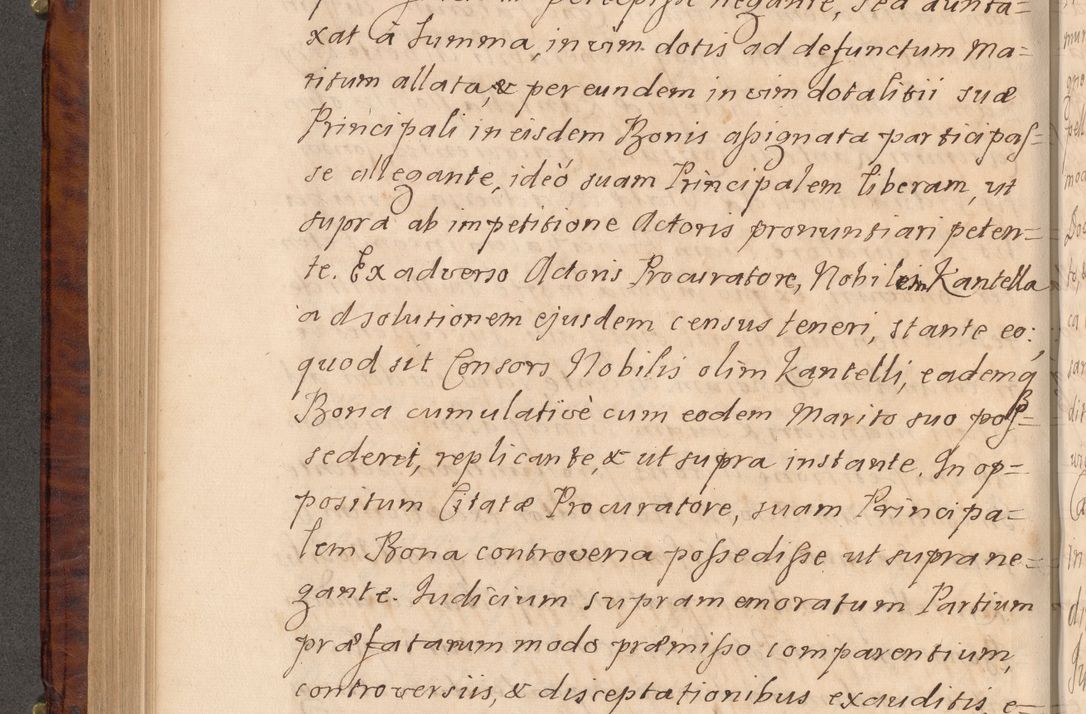 percepisse negante, sed dunta=
xat à summa, in vim dotis ad defunctum Ma=
ritum allata, & per eundem in vim dotalitii suæ
Principali in eisdem Bonis assignata participas=
se allegante, ideó suam Principalem liberam, ut
supra ab impetitione Actoris pronuntiari peten=
te. Ex adverso Actoris Procuratore, Nobilem Kantella
ad solutionem ejusdem census teneri, stante eo;
quod sit Consors Nobilis olim Kantelli, eademq
Bona cumulativè cum eodem Marito suo pos=
sederit, replicante, & ut supra instante. In op=
positum Citatæ Procuratore, suam Principa=
lem Bona controversa possedisse ut supra ne=
gante. Iudicium supramemoratum Partium
præfatarum modo præmisso comparentium,
controversiis, & disceptationibus exauditis, e=